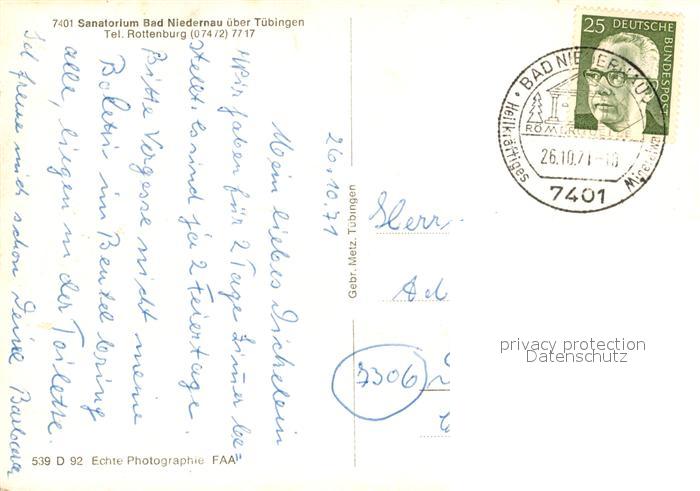 7401 Sanatorium Bad Niedernau über Tübingen
Tel. Rottenburg (07472) 7717
26.10.71
Mein liebes
Wir haben für 2 Tage Zimmer be=
stellt. Es sind ja 2 Feiertage.
Bitte Vergesse nicht meine
im Beutel bring
alle, liegen in der Toilette.
Ich freue mich schon Deine Barbara
539 D 92 Echte Photographie FAA
Gebr. Metz, Tübingen
25 DEUTSCHE
BUNDESPOST
BAD NIEDERNAU
Heilkräftiges
26.10.71-18
7401
Herr
Ad
7306
privacy protection
Datenschutz